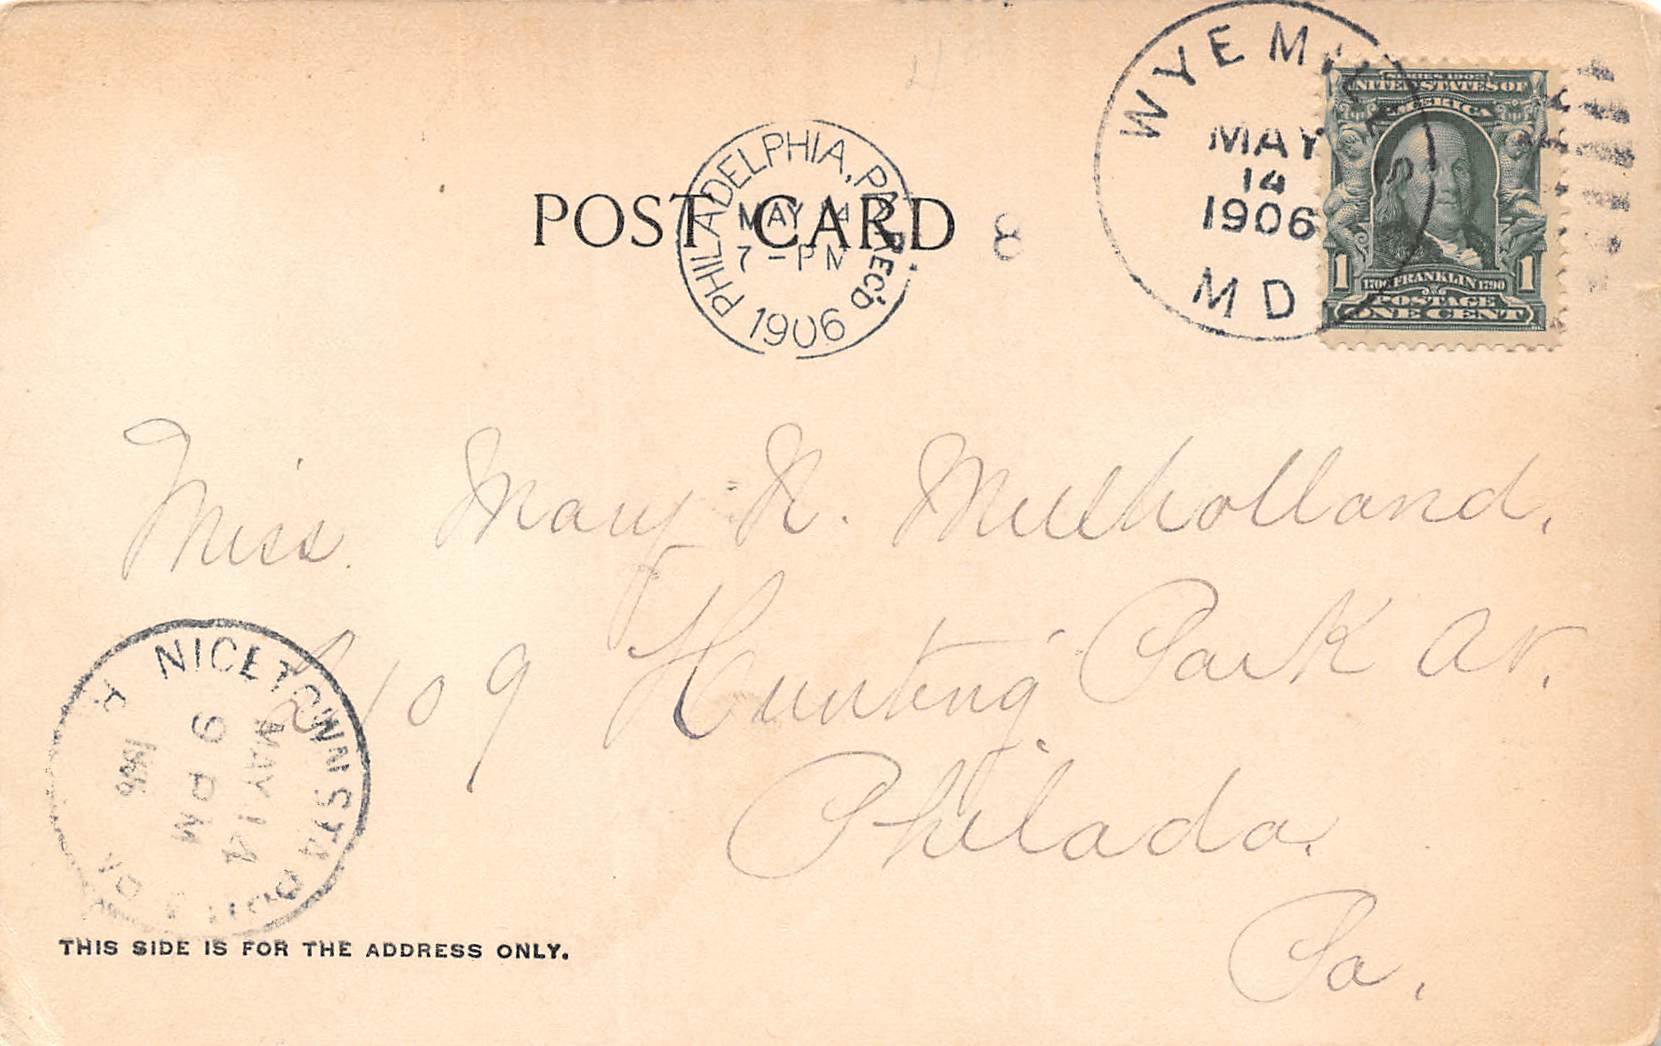 WYE MILLS
MAY
14
1906
MD.
SERIES 1902
UNITED STATES OF
AMERICA
1 1706 FRANKLIN 1790 1
POSTAGE
ONE CENT
POST CARD
8
PHILADELPHIA, PA. REC'D
MAY 14
7-PM
1906
Miss Mary N. Mulholland,
2109 Hunting Park Av.
Philada.
Pa.
NICETOWN STATION
MAY 14
9 PM
1906
PHILA PA
THIS SIDE IS FOR THE ADDRESS ONLY.